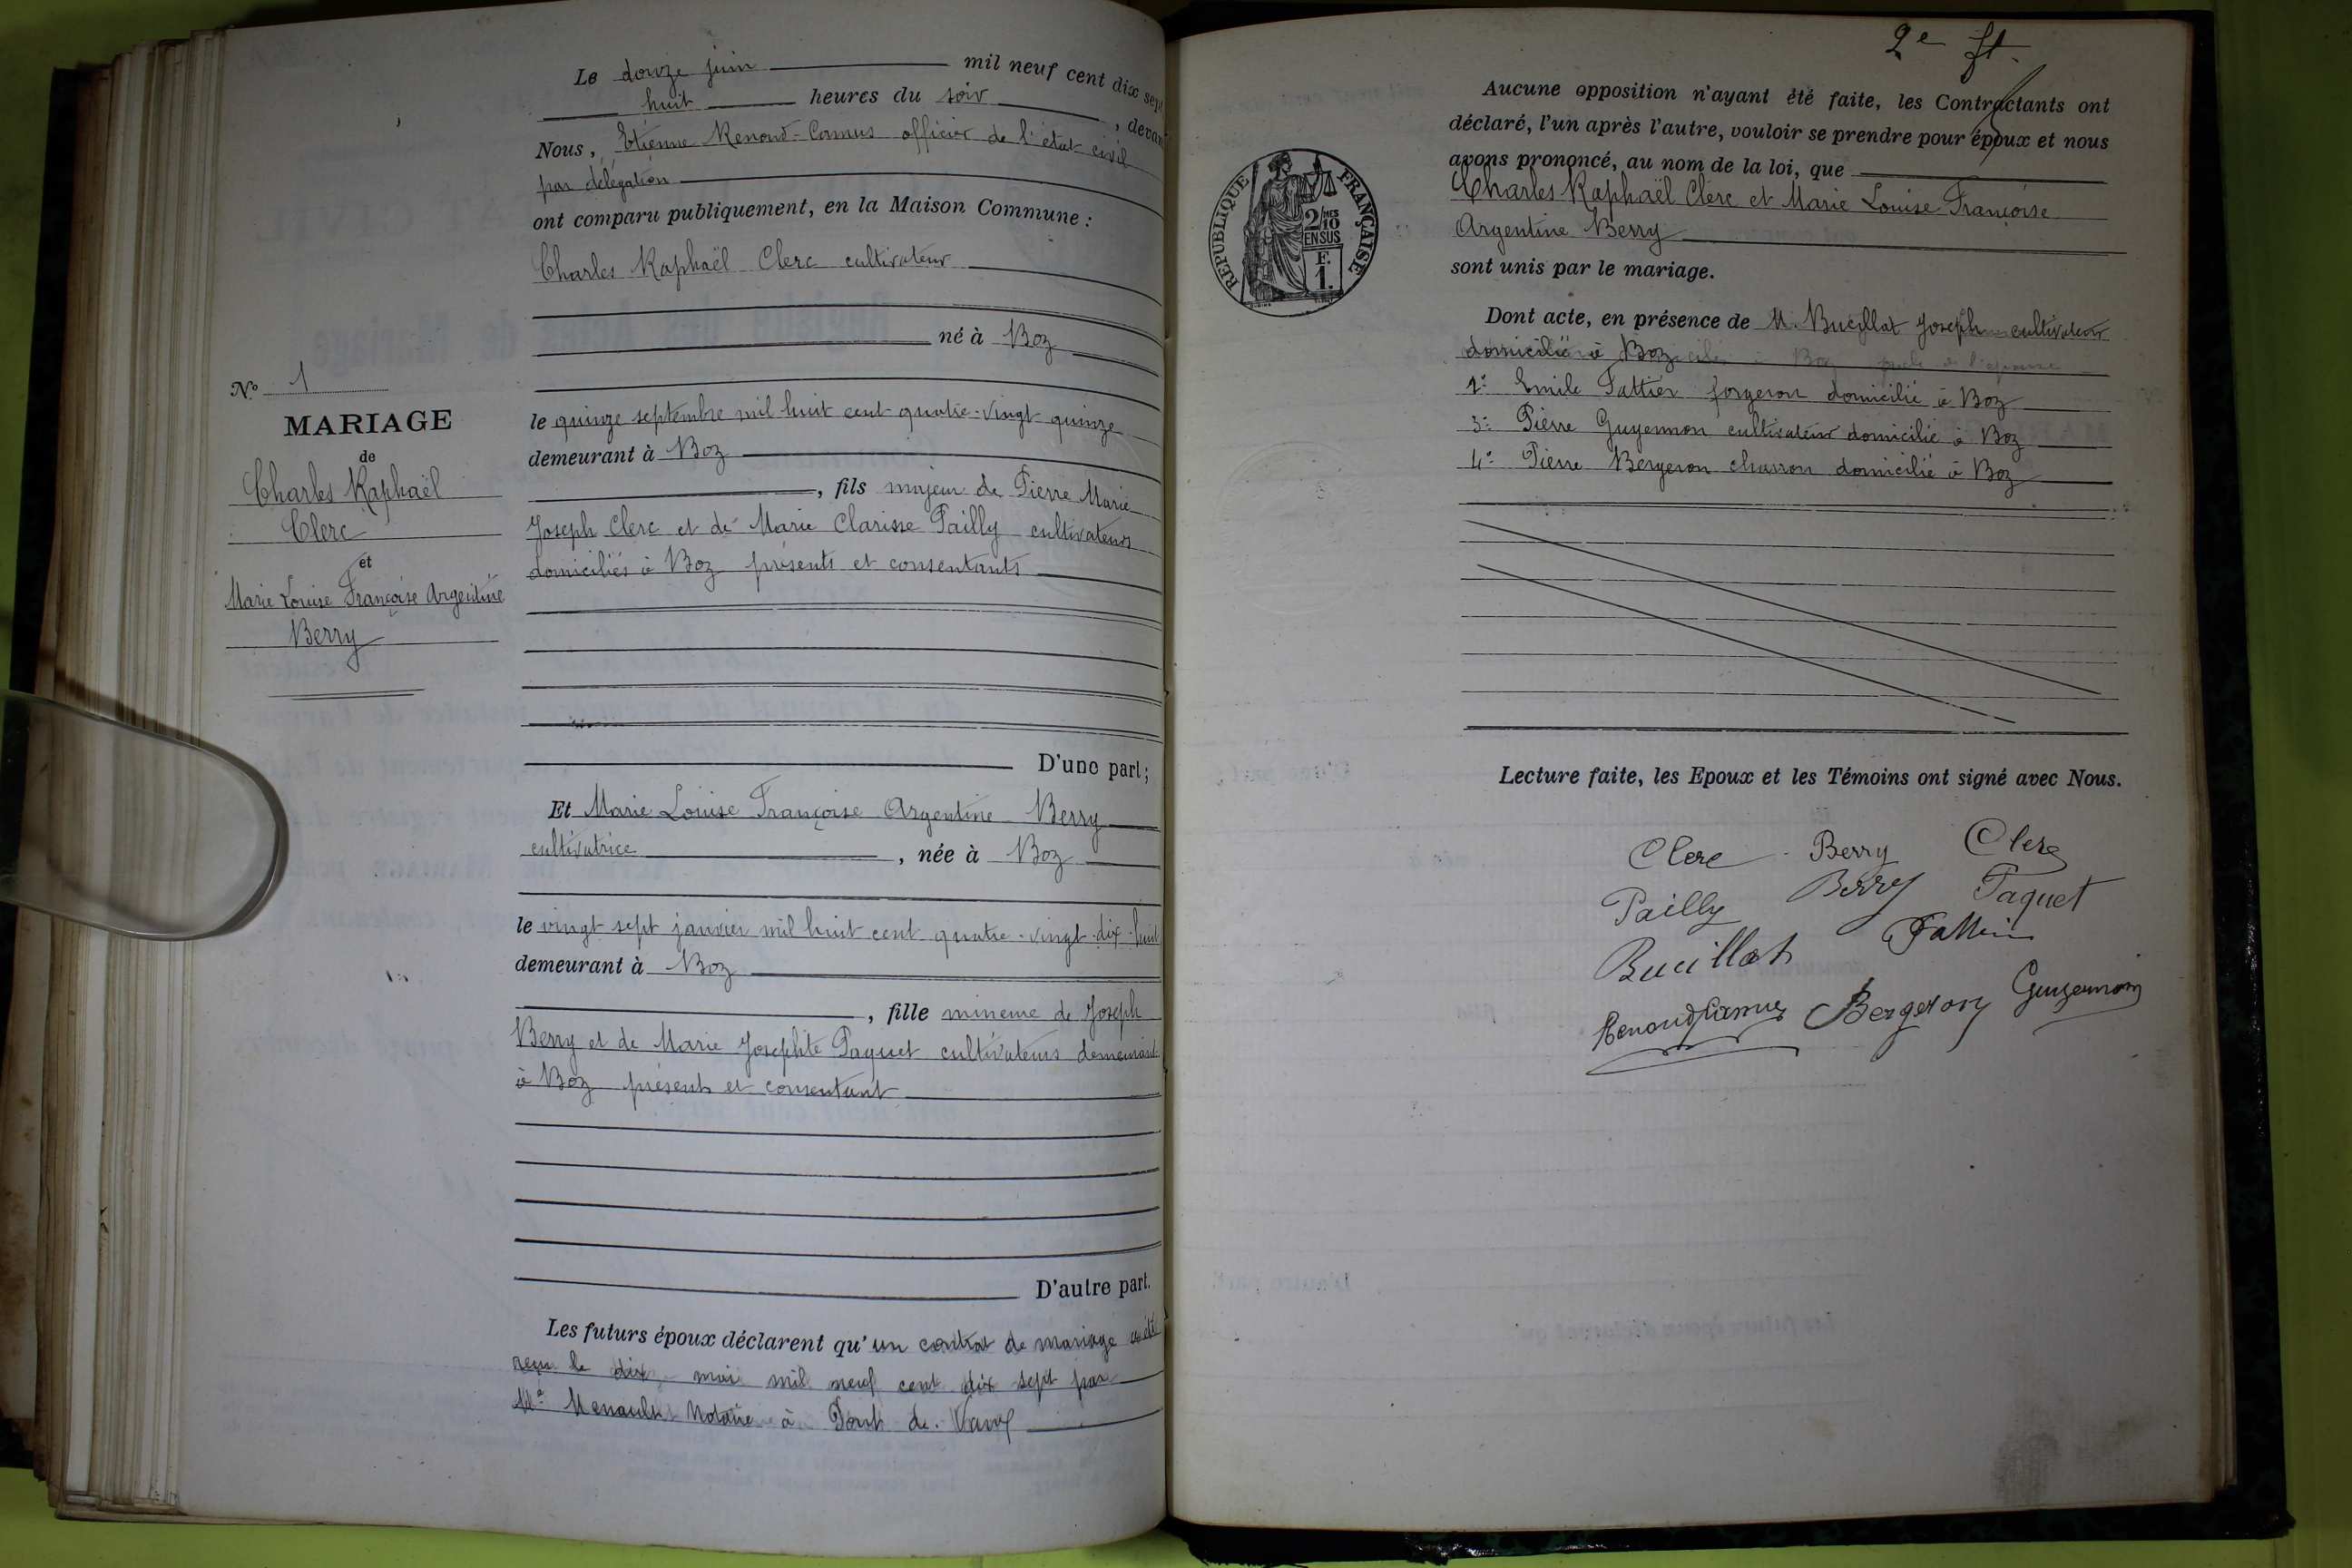 Le douze juin mil neuf cent dix sept
huit heures du soir, devant
Nous, Etienne Renoud-Camus officier de l'état civil
par délégation
ont comparu publiquement, en la Maison Commune :
Charles Raphaël Clerc cultivateur
né à Boz
le quinze septembre mil huit cent quatre-vingt quinze
demeurant à Boz
, fils majeur de Pierre Marie
Joseph Clerc et de Marie Clarisse Pailly cultivateurs
domiciliés à Boz présents et consentants
D'une part;
Et Marie Louise Françoise Argentine Berry
cultivatrice, née à Boz
le vingt sept janvier mil huit cent quatre-vingt-dix-huit
demeurant à Boz
, fille mineure de Joseph
Berry et de Marie Josephte Paquet cultivateurs demeurant
à Boz présents et consentant
D'autre part.
Les futurs époux déclarent qu'un contrat de mariage a été
reçu le dix mai mil neuf cent dix sept par
Me Notaire à Pont de Vaux
No 1
MARIAGE
de
Charles Raphaël
Clerc
et
Marie Louise Françoise Argentine
Berry
2e ft.
RÉPUBLIQUE FRANÇAISE
2/10
EN SUS
F.
1.
Aucune opposition n'ayant été faite, les Contractants ont
déclaré, l'un après l'autre, vouloir se prendre pour époux et nous
avons prononcé, au nom de la loi, que
Charles Raphaël Clerc et Marie Louise Françoise
Argentine Berry
sont unis par le mariage.
Dont acte, en présence de M. Bucillat Joseph cultivateur
domicilié à Boz
2° Emile Fattier forgeron domicilié à Boz
3° Pierre Guyennon cultivateur domicilié à Boz
4° Pierre Bergeron charron domicilié à Boz
Lecture faite, les Epoux et les Témoins ont signé avec Nous.
Clerc Berry Clerc
Pailly Berry Paquet
Bucillat Fattier
Renoud Camus Bergeron Guyennon